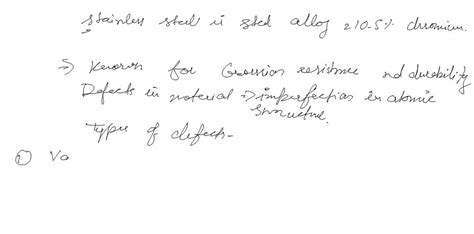 Stainless steel is steel alloy ≥10.5% chromium.
⇒ Known for Corrosion resistance nd durability
Defects in material ⇒ imperfection in atomic
structure.
Types of defects-
① Va